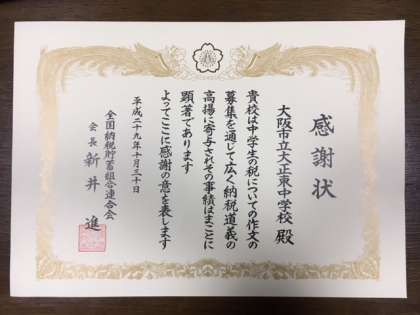 感謝状
大阪市立大正東中学校 殿
貴校は中学生の税についての作文の
募集を通じて広く納税道義の
高揚に寄与されその事績はまことに
顕著であります
よってここに感謝の意を表します
平成二十九年十月三十日
全国納税貯蓄組合連合会
会長 新井 進